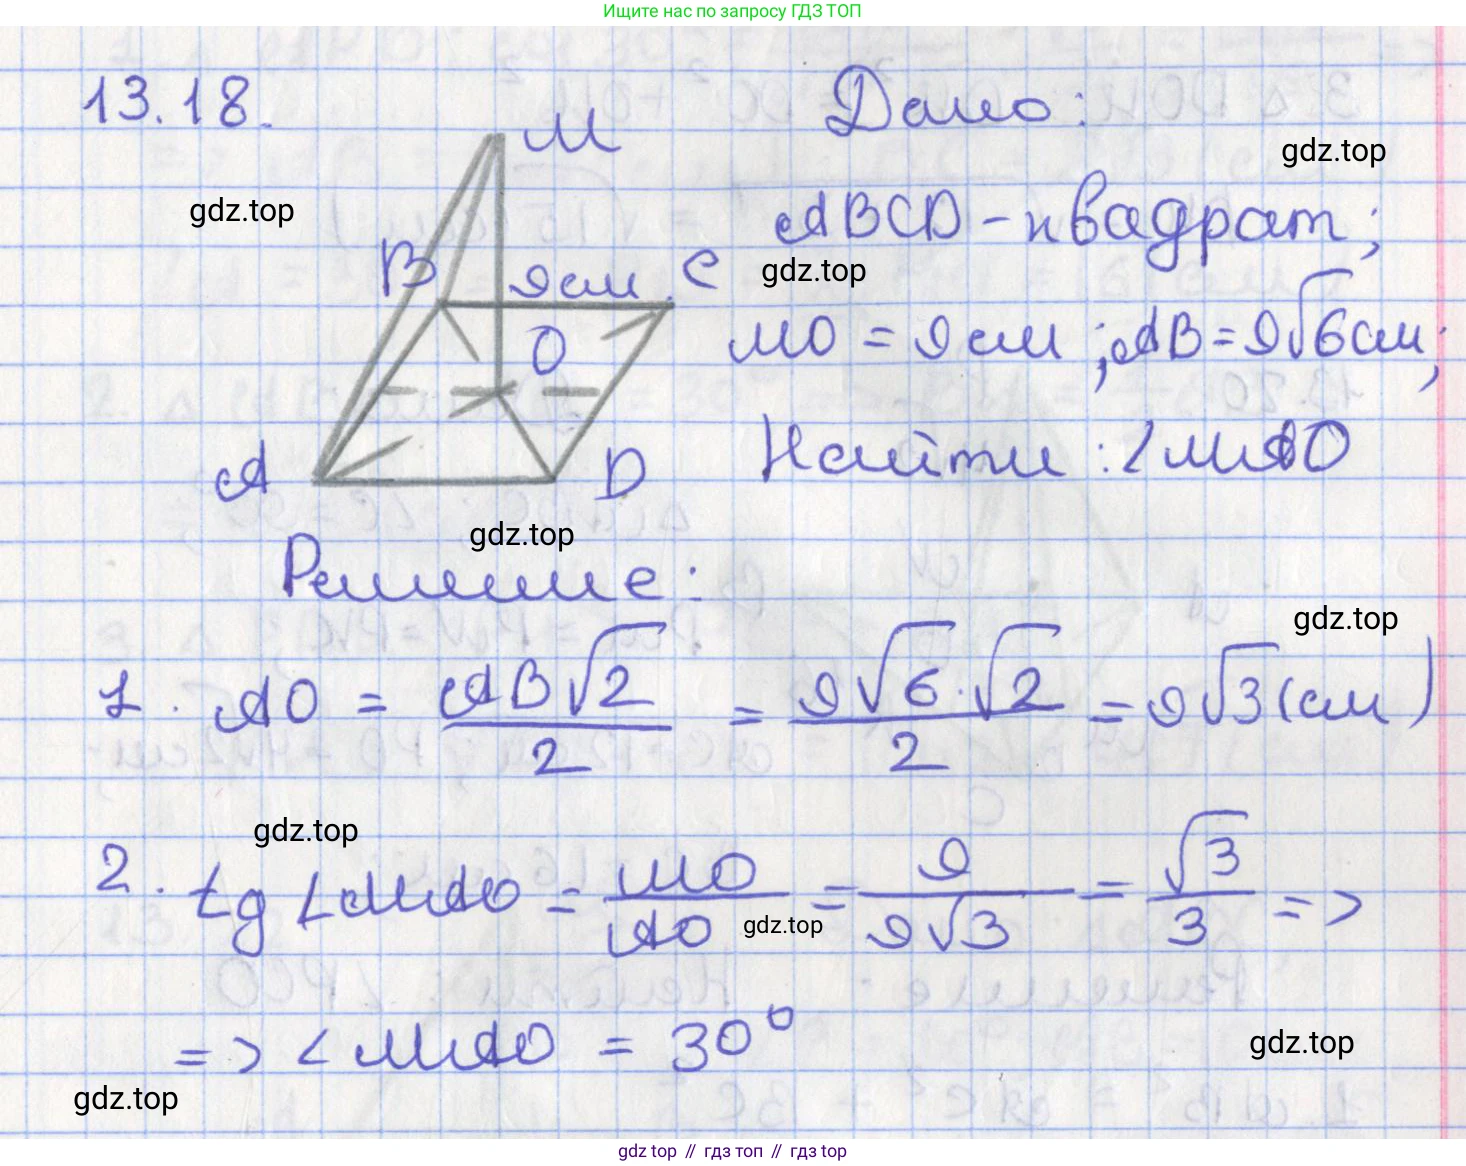 Ищите нас по запросу ГДЗ ТОП
13.18.
M
Дано:
gdz.top
gdz.top
ABCD - квадрат;
B
9 см
C
gdz.top
MO = 9 см; AB = 9√6 см;
O
Найти: ∠MAO
A
D
gdz.top
Решение:
gdz.top
1. AO = AB√2/2 = 9√6·√2/2 = 9√3 (см)
gdz.top
2. tg ∠MAO = MO/AO = 9/9√3 = √3/3 =>
gdz.top
=> ∠MAO = 30°
gdz.top
gdz.top
gdz top // гдз топ // гдз top